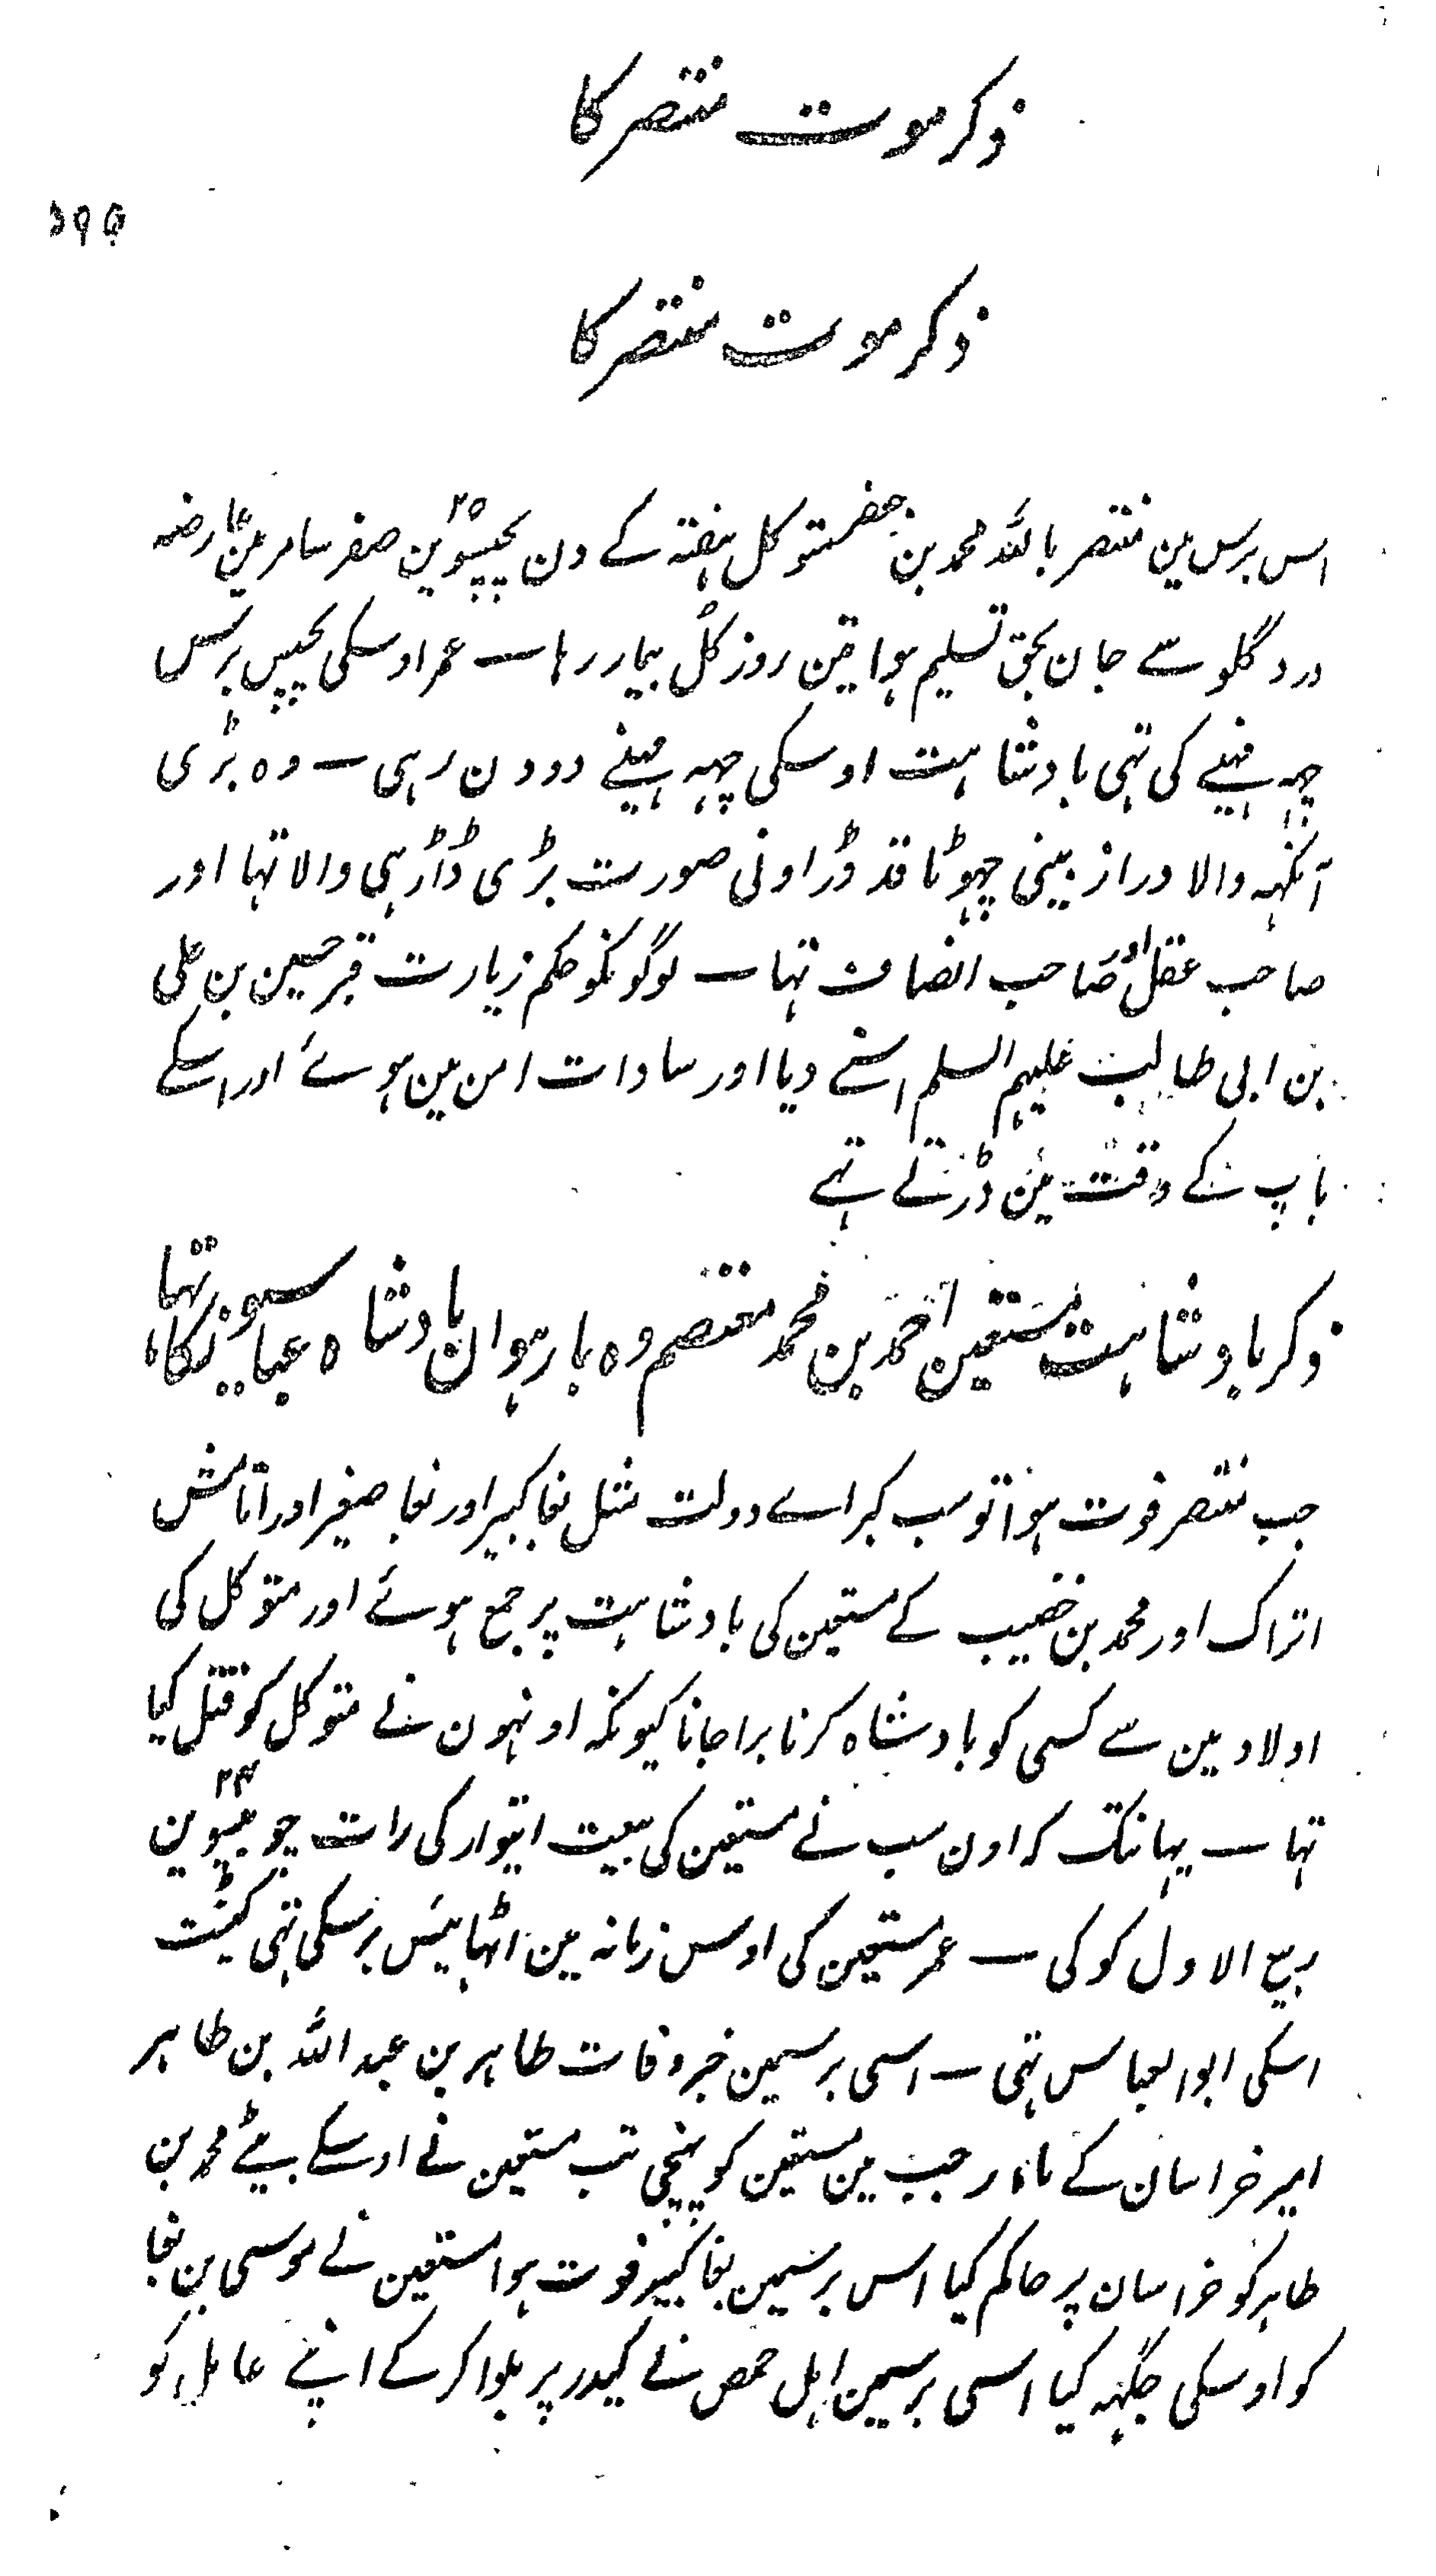 ذکر موت منتصر کا
ذکر موت منتصر کا
اس برس مین منتصر باللہ محمد بن جعفر متوکل ہفتہ کے دن پچیسوین ۲۵ صفر سامرہ مین عارضہ
درد گلو سے جان بحق تسلیم ہوا تین روز کل بیمار رہا ــ عمر اوسکی پچیس برس
چہہ مہنیے کی تہی بادشاہت اوسکی چہہ مہینے دو دن رہی ــ وہ بڑی
آنکہہ والا دراز بینی چہوٹا قد ڈراونی صورت بڑی ڈاڑہی والا تہا اور
صاحب عقل اور صاحب انصاف تہا ــ لوگونکو حکم زیارت قبر حسین بن علی
بن ابی طالب علیہم السلم اسنے دیا اور سادات امن مین ہوئے اور اسکے
باپ کے وقت مین ڈرتے تہے
ذکر بادشاہت مستعین احمد بن محمد معتصم وہ بارہوان بادشاہ عباسیونکا تہا
جب منتصر فوت ہوا تو سب کبراے دولت مثل بغا کبیر اور بغا صغیر اور اتامش
اتراک اور محمد بن خضیب کے مستعین کی بادشاہت پر جمع ہوئے اور متوکل کی
اولاد مین سے کسی کو بادشاہ کرنا برا جانا کیونکہ اونہون نے متوکل کو قتل کیا
تہا ــ یہانتک کہ اون سب نے مستعین کی بیعت ایتوار کی رات چوبیسوین ۲۴
ربیع الاول کو کی ــ عمر مستعین کی اوس زمانہ مین اٹہائیس برسکی تہی کنیت
اسکی ابو العباس تہی ــ اسی برسمین خبر وفات طاہر بن عبد اللہ بن طاہر
امیر خراسان کے ماہ رجب مین مستعین کو پہنچی تب مستعین نے اوسکے بیٹے محمد بن
طاہر کو خراسان پر حاکم کیا اس برسمین بغا کبیر فوت ہوا مستعین نے موسی بن بغا
کو اوسکی جگہہ کیا اسی برسمین اہل حمص نے کیدر پر بلوا کر کے اپنے عامل کو